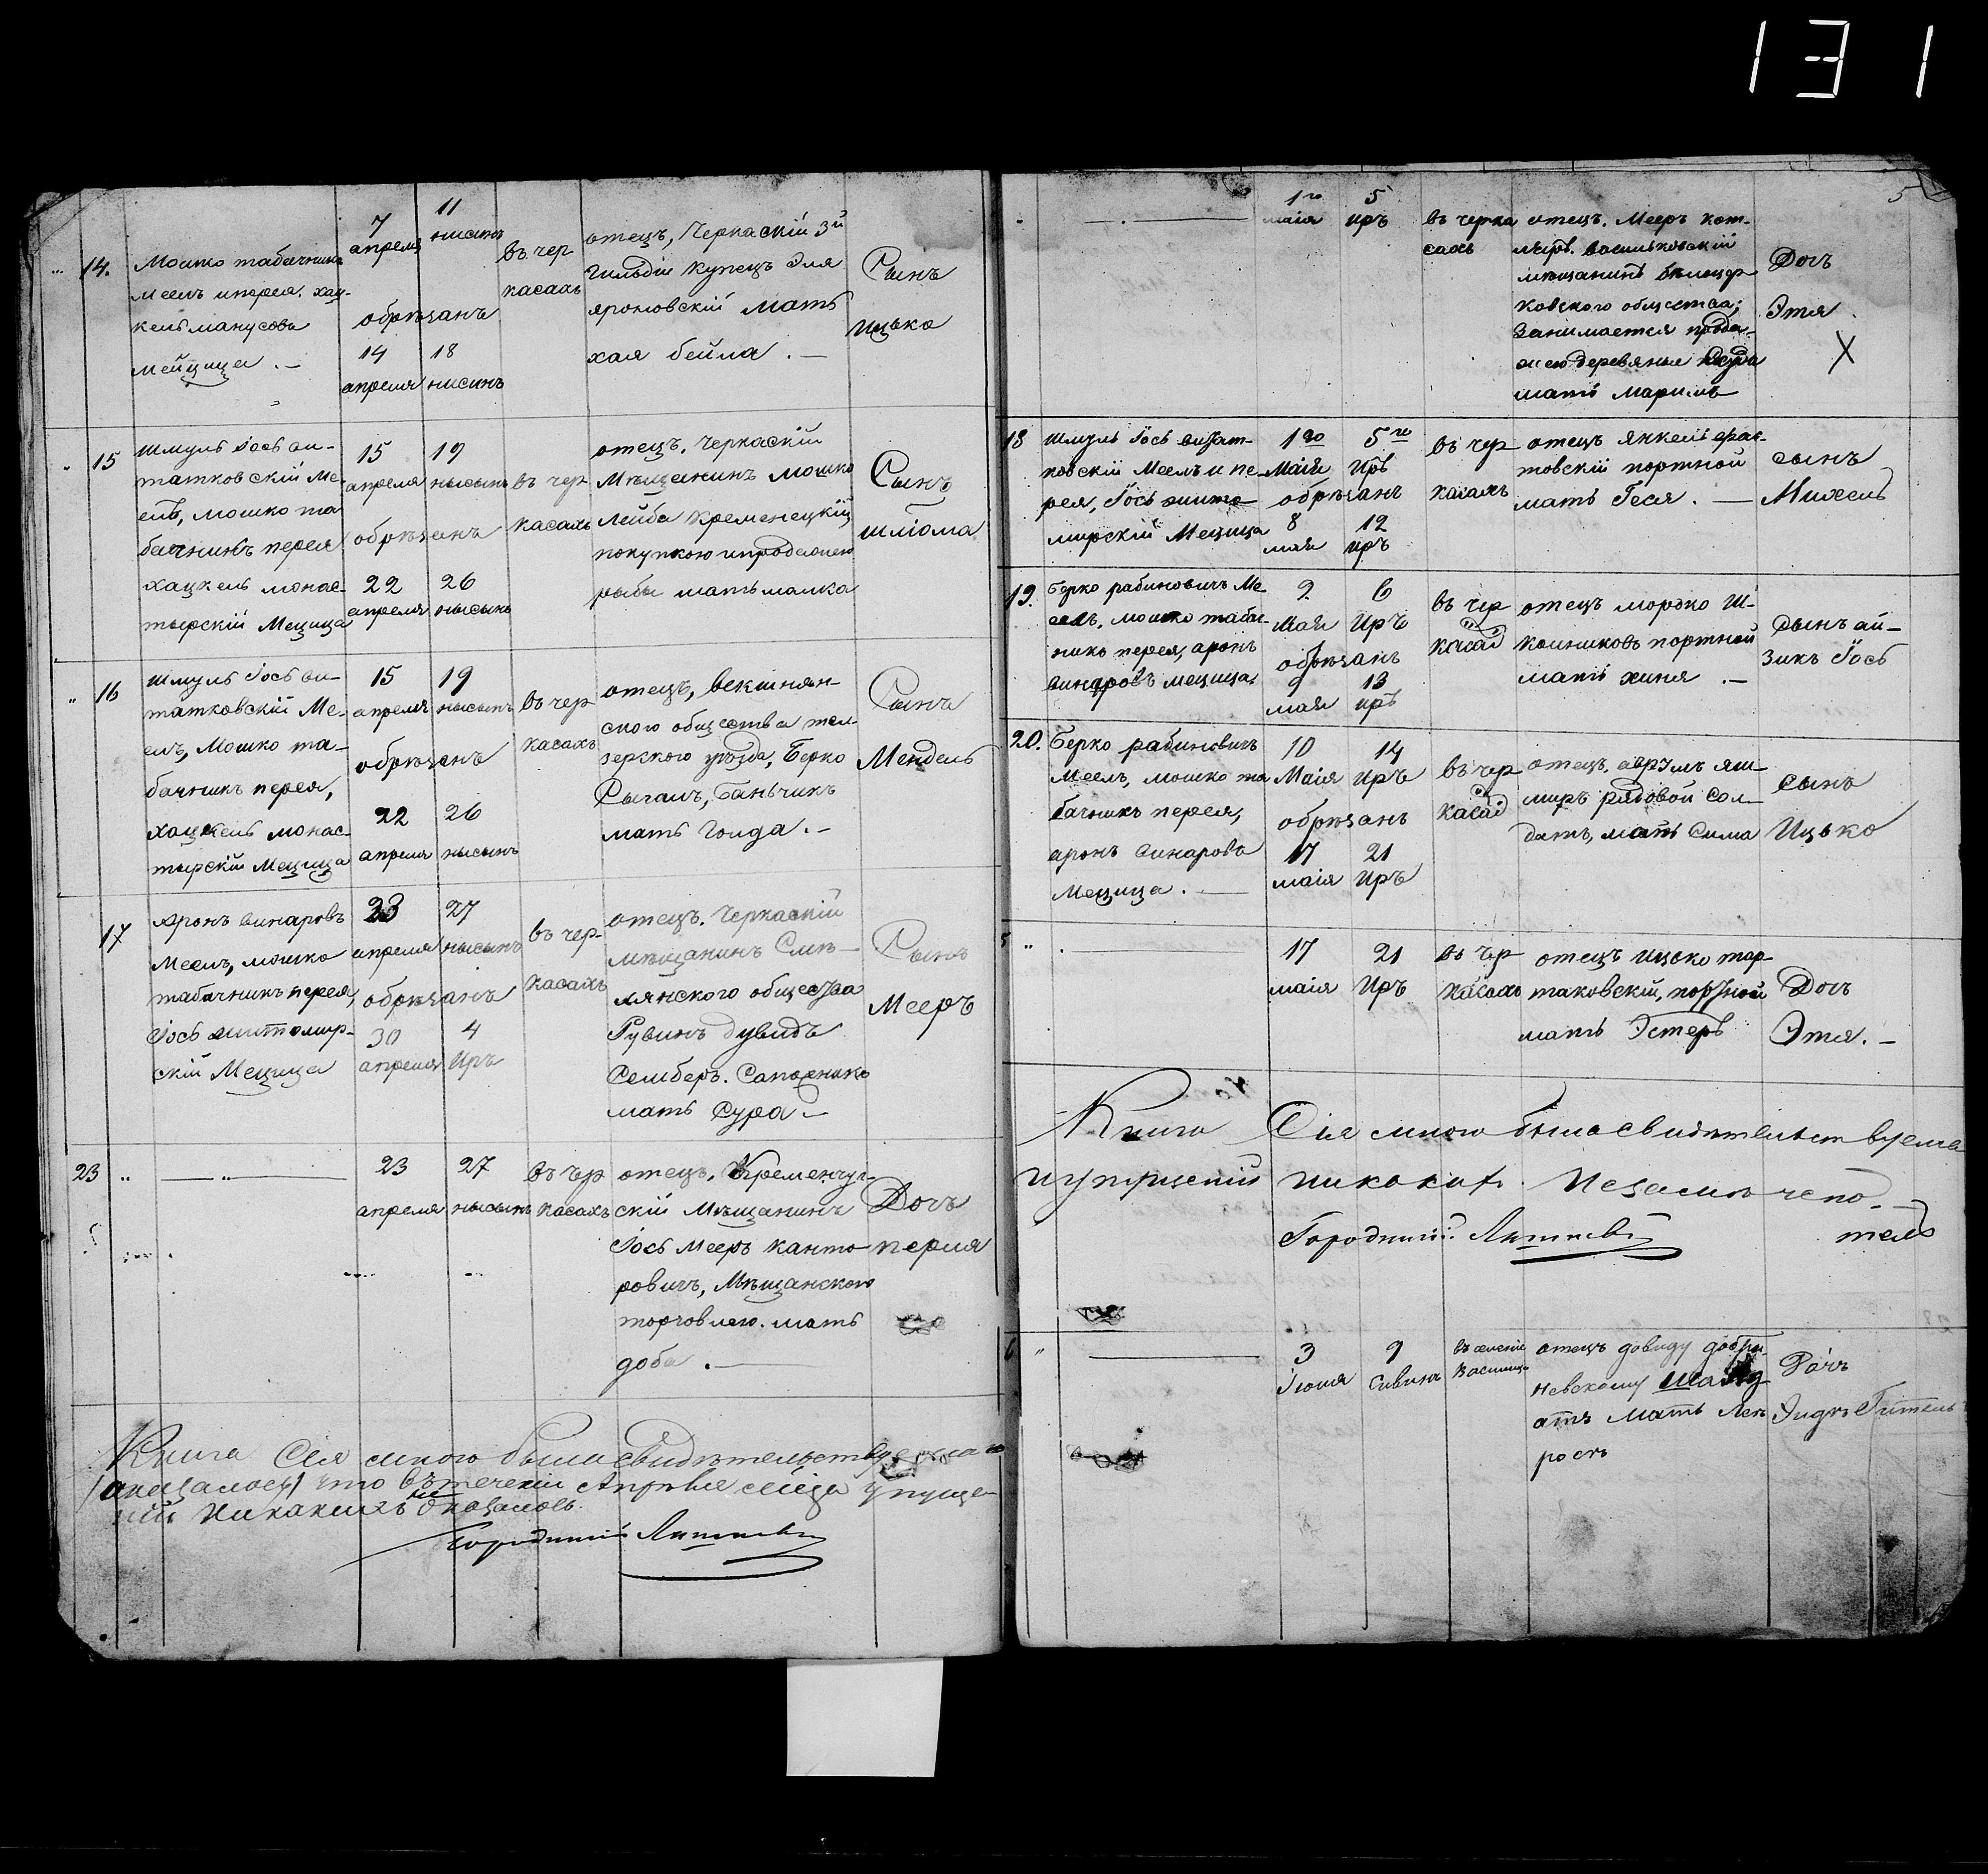 131
14.
Мошко табачникъ
Меелъ иперея. хац-
кель манусовъ
мейцица . —
7 11
апреля нисинъ
обрѣзанъ
14 18
апреля нисинъ
въ чер
касахъ
отецъ, Черкаскій 3й
гильдіи купецъ Эля
яроновскій мать
хая бейла . —
Сынъ
ицько
15
шмуль Іось ви-
татковскій Ме-
елъ, мошко та
бачникъ перея
хацкель монас-
тырскій Мецица
15 19
апреля нысынъ
обрѣзанъ
22 26
апреля нысынъ
въ чер
касахъ
отецъ. Черкаскій
Мѣщанинъ мошко
лейба Кременецкій
покупкою ипродажею
рыбы мать малка
Сынъ
шліома
16
шмуль Іось ви-
татковскій Ме-
елъ, Мошко та-
бачникъ перея,
хацкель монас-
тырскій Мецица
15 19
апреля нысынъ
обрѣзанъ
22 26
апреля нысынъ
въ чер
касахъ
отецъ, векшнян-
ского общества тел-
зерского уѣзда, Берко
мать Голда. —
Сынъ
Мендель
17
Аронъ винаровъ
Меелъ, мошко
табачникъ перея,
Іось житомир-
скій Мецица
23 27
апреля нысынъ
обрѣзанъ
30 4
апреля Иръ
въ чер-
касахъ
отецъ. Черкаскій
мѣщанинъ Смѣ-
лянского общества
Рувинъ дувидъ
Селмберъ. Сапожникъ
мать Сура —
Сынъ
Мееръ
23
23 27
апреля нысынъ
въ чер
касахъ
отецъ. Кременчуг-
скій Мѣщанинъ
Іось Мееръ канто-
ровичъ, Мѣщанскою
торговлею. мать
доба . —
Дочъ
перля
Книга Сія мною была свидѣтельствуема и
оказалось что въ теченіи Апреля мѣсяца упуще-
ній никакихъ не оказалось
Городничій
5
1го 5
маія иръ
въ черка
сахъ
отецъ. Мееръ кот-
ляръ. васильковскій
мѣщанинъ бѣлоцер
ковского общества;
Занимается прода-
жею деревяные посуда
мать Марилъ
Дочъ
Этя .
X
18
шмуль Іось витат-
ковскій Меелъ и пе-
рея, Іось жито-
мирскій Мецица
1го 5го
Маія Иръ
обрѣзанъ
8 12
мая иръ
въ чер
касахъ
отецъ янкель фрас-
товскій портной
мать Геся . —
сынъ
Михель
19.
Берко рабиновичъ Ме-
еелъ. мошко таба-
никъ перея, аронъ
винаровъ мецица
2 6
мая Иръ
обрѣзанъ
9 13
мая иръ
въ чер
касах
отецъ мордко Ш-
колниковъ портной
мать хиня . —
сынъ ай-
зикъ Іось
20.
Берко рабиновичъ
Меелъ, мошко та
бачникъ перея,
аронъ винаровъ
Мецица . —
10 14
Маія Иръ
обрѣзанъ
17 21
маія Иръ
въ чер
касах
отецъ. аврумъ яш-
миръ рядовой сол-
датъ, мать Сима
сынъ
Ицько
17 21
маія Иръ
въ чер
касахъ
отецъ ицько тар-
таковскій, портной
мать Эстеръ
Дочъ
Этя. —
Книга Сія мною была свидѣтельствуема
и упущеній никакихъ незамѣчено. —
Городничій
3 9
Іюня Сивинъ
въ селеніи
отецъ довиду добра-
невскому
мать Лея
Дочъ
Гитель